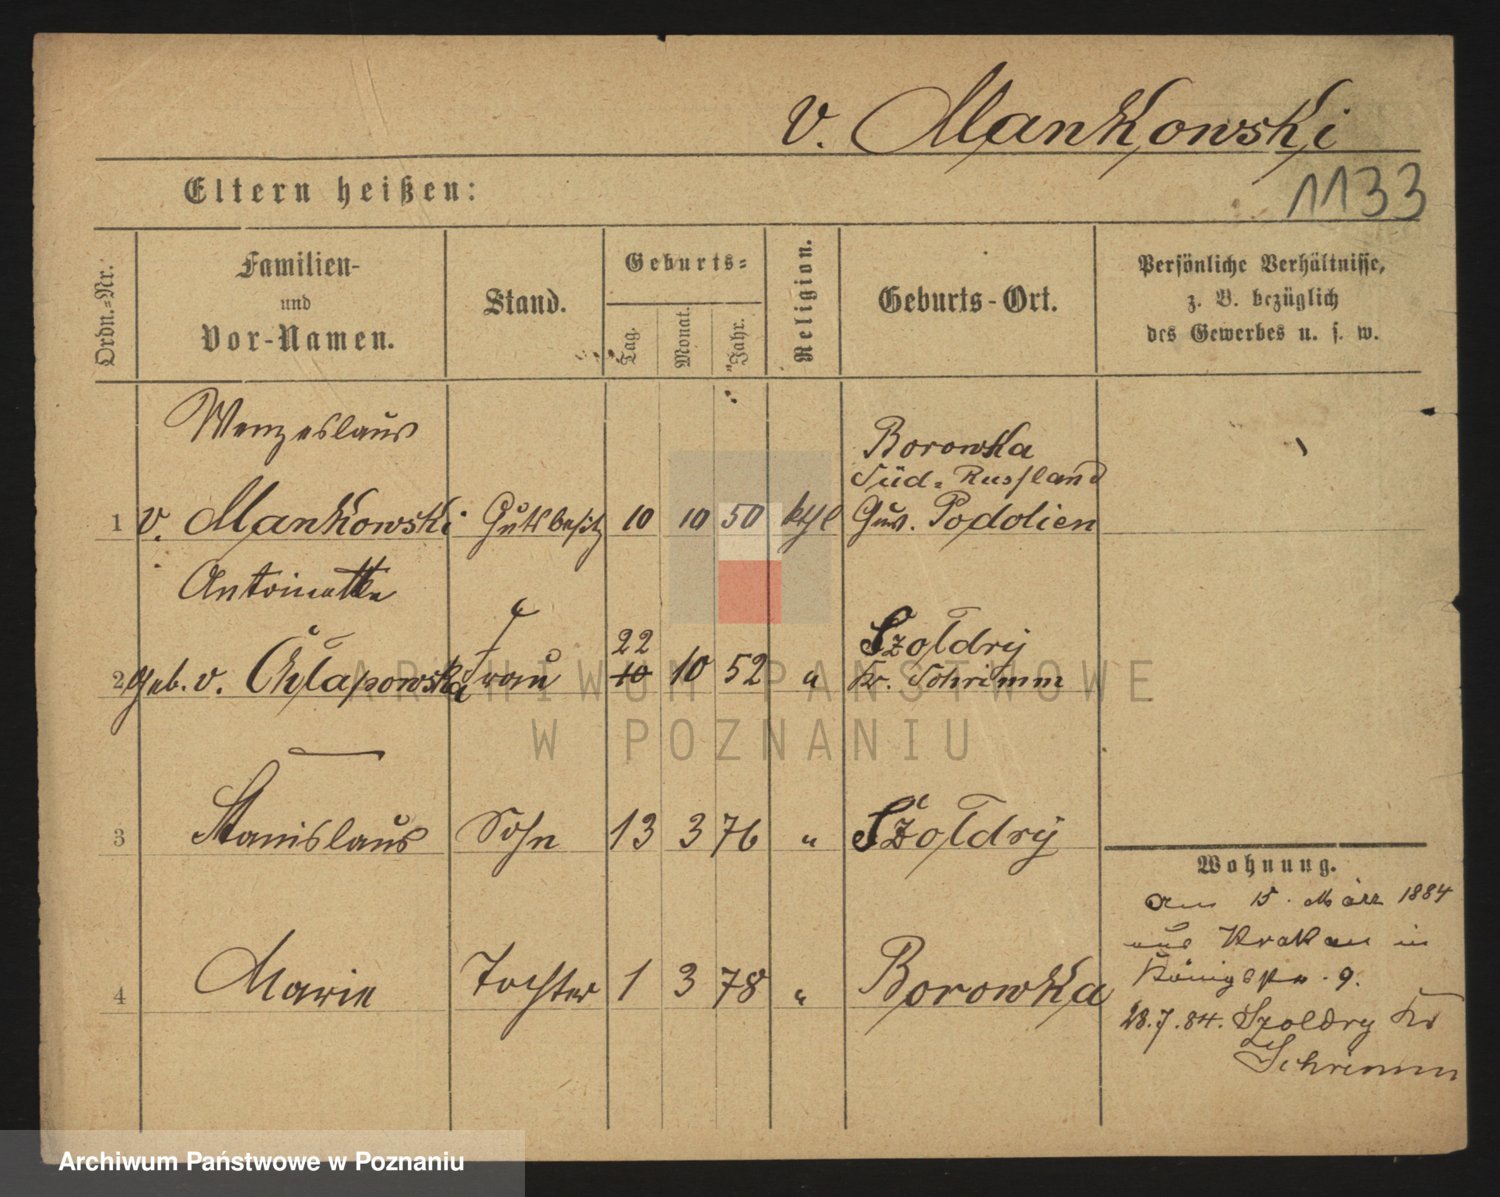 v. Mankowski
Eltern heißen:
1133
Ordn.-Nr.
Familien-
und
Vor-Namen.
Stand.
Geburts-
Tag.
Monat.
Jahr.
Religion.
Geburts-Ort.
Persönliche Verhältnisse,
z. B. bezüglich
des Gewerbes u. s. w.
Wenzeslaus
Borowka
Süd-Russland
1 v. Mankowski Gutsbesitz 10 10 50 kthl Guv. Podolien
Antoinette
22 Szołdrÿ
2 geb. v. Chłapowska Frau 10 10 52 " Kr. Schrimm
3 Stanislaus Sohn 13 3 76 " Szołdrÿ
4 Marie Tochter 1 3 78 " Borowka
Wohnung.
am 15. März 1884
aus Krakau in
Königstr. 9.
28.7.84. Szoldry Kr
Schrimm
ARCHIWUM PAŃSTWOWE
W POZNANIU
Archiwum Państwowe w Poznaniu